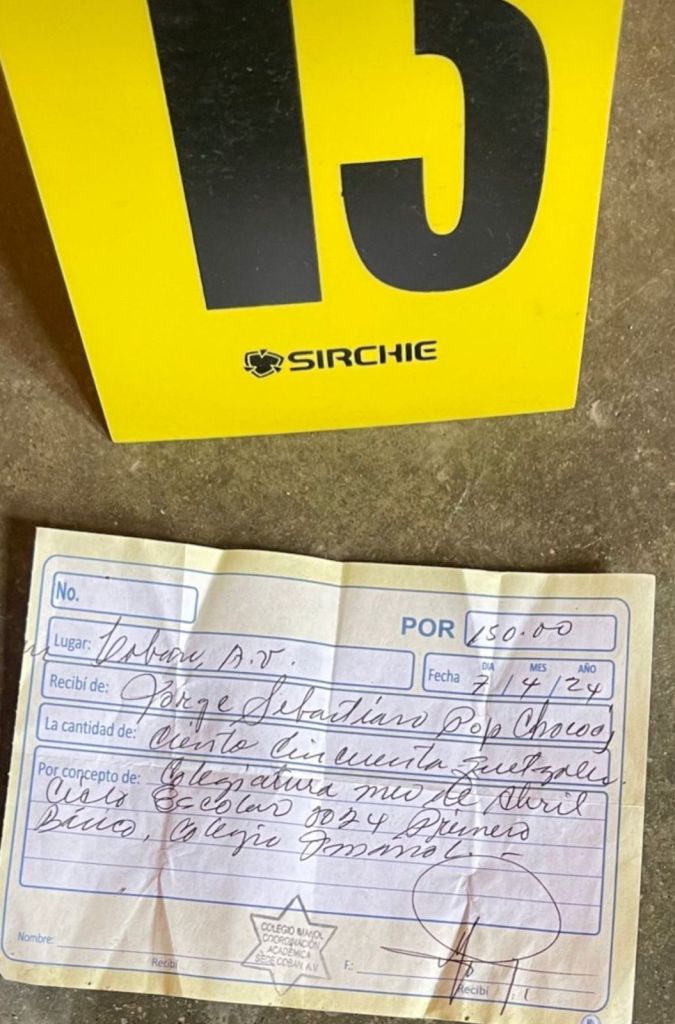 13
SIRCHIE
No.
POR 150.00
Lugar: Coban, A.V.
Fecha DIA MES AÑO 7/4/24
Recibí de: Jorge Sebastiano Pop Chocooj
La cantidad de: Ciento Cincuenta quetzales.
Por concepto de: Colegiatura mes de Abril
Ciclo Escolar 2024 Primero
Básico, Colegio Imanol. -
COLEGIO IMANOL
COORDINACIÓN
ACADÉMICA
SEDE COBAN A.V.
Nombre:
Recibí
F.:
Recibí